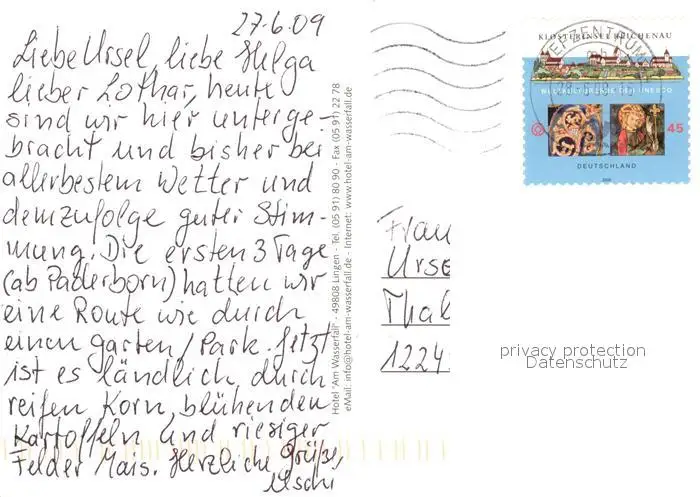 27.6.09
Liebe Ursel, liebe Helga
lieber Lothar, heute
sind wir hier unterge-
bracht und bisher bei
allerbestem Wetter und
demzufolge guter Stim-
mung. Die ersten 3 Tage
(ab Paderborn) hatten wir
eine Route wie durch
einen Garten/Park. Jetzt
ist es ländlich, durch
reifen Korn, blühenden
Kartoffeln und riesiger
Felder Mais. Herzliche Grüße,
Uschi
Hotel "Am Wasserfall" · 49808 Lingen · Tel. (05 91) 80 90 · Fax (05 91) 22 78
eMail: info@hotel-am-wasserfall.de · Internet: www.hotel-am-wasserfall.de
KLOSTERINSEL REICHENAU
WELTKULTURERBE DER UNESCO
45
DEUTSCHLAND
2008
Frau
Urse
Thal
1224
privacy protection
Datenschutz